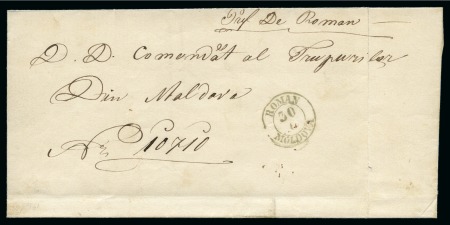 De Roman
D. D. Comandat al Trupurilor
Din Moldova
ROMAN
30
MOLDOVA